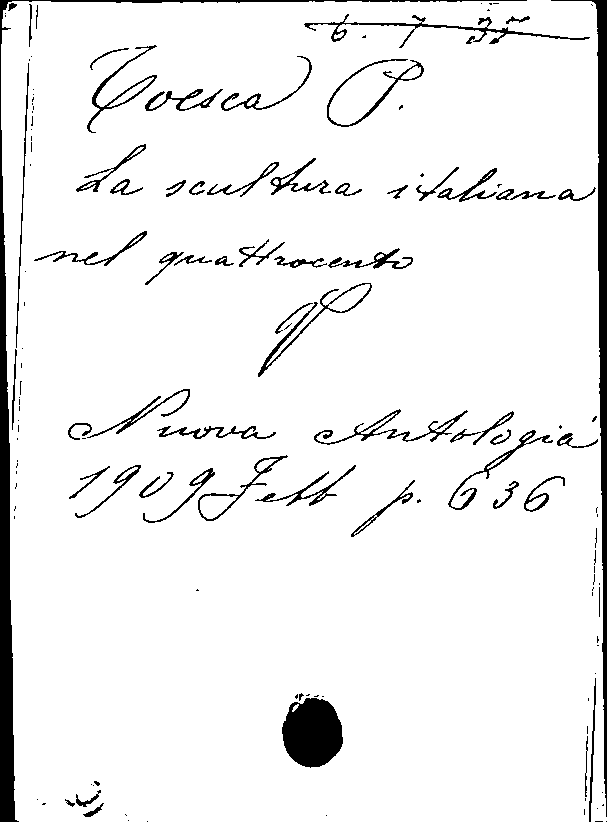 6. 7 35
Toesca P.
La scultura italiana
nel quattrocento
V
Nuova Antologia
1909 Febb p. 636